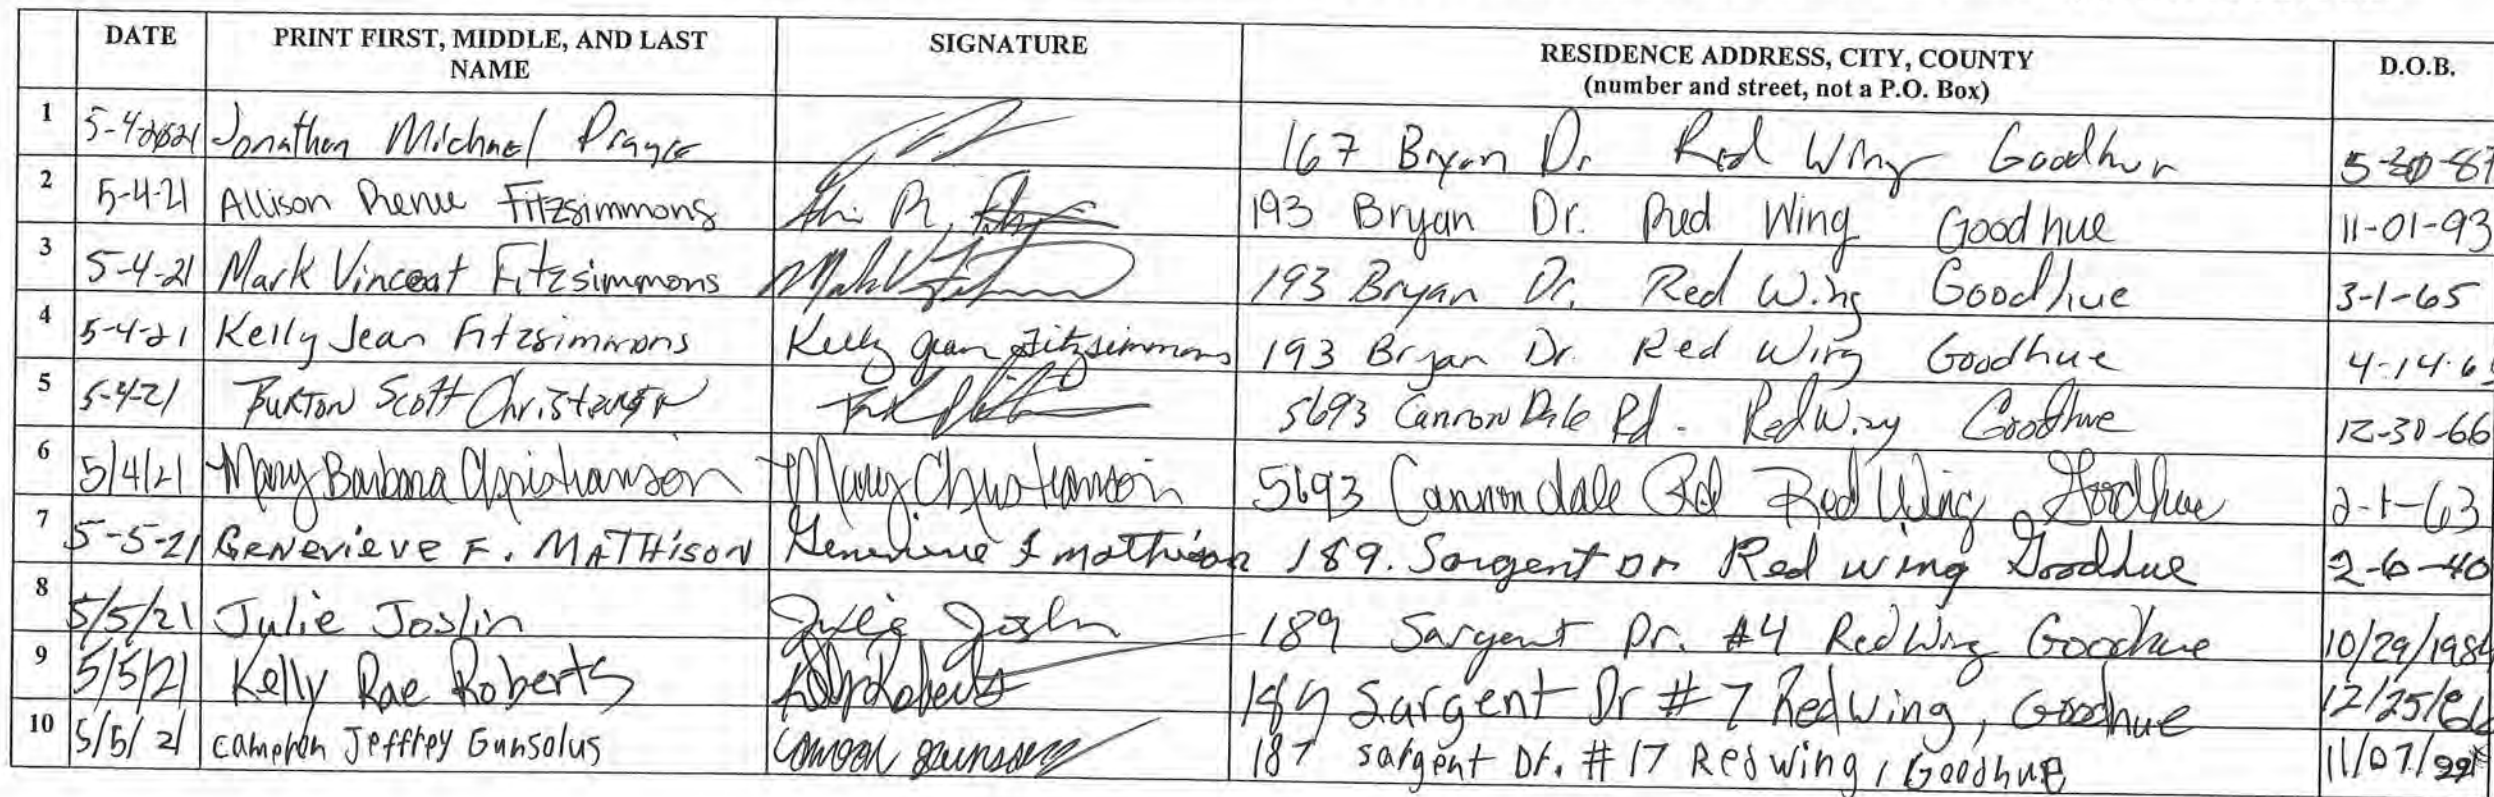 DATE PRINT FIRST, MIDDLE, AND LAST NAME SIGNATURE RESIDENCE ADDRESS, CITY, COUNTY (number and street, not a P.O. Box) D.O.B.
1 5-4-2021 Jonathan Michael 167 Bryan Dr Red Wing Goodhue 5-30-87
2 5-4-21 Allison Renee Fitzsimmons 193 Bryan Dr. Red Wing Goodhue 11-01-93
3 5-4-21 Mark Vincent Fitzsimmons 193 Bryan Dr. Red Wing Goodhue 3-1-65
4 5-4-21 Kelly Jean Fitzsimmons Kelly Jean Fitzsimmons 193 Bryan Dr. Red Wing Goodhue
5 5-4-21 Burton Scott Christianson 5693 Cannon Dale Rd. Red Wing Goodhue 12-30-66
6 5/4/21 Mary Barbara Christianson Mary Christianson 5693 Cannondale Rd Red Wing Goodhue 2-1-63
7 5-5-21 GENEVIEVE F. MATHISON Genevieve F Mathison 189. Sargent Dr Red Wing Goodhue 2-6-40
8 5/5/21 Julie Joslin Julie Joslin 189 Sargent Dr. #4 Red Wing Goodhue
9 5/5/21 Kelly Rae Roberts Kelly Roberts 189 Sargent Dr #7 Red Wing, Goodhue
10 5/5/21 Jeffrey Gunsolus 187 Sargent Dr. #17 Red Wing, Goodhue